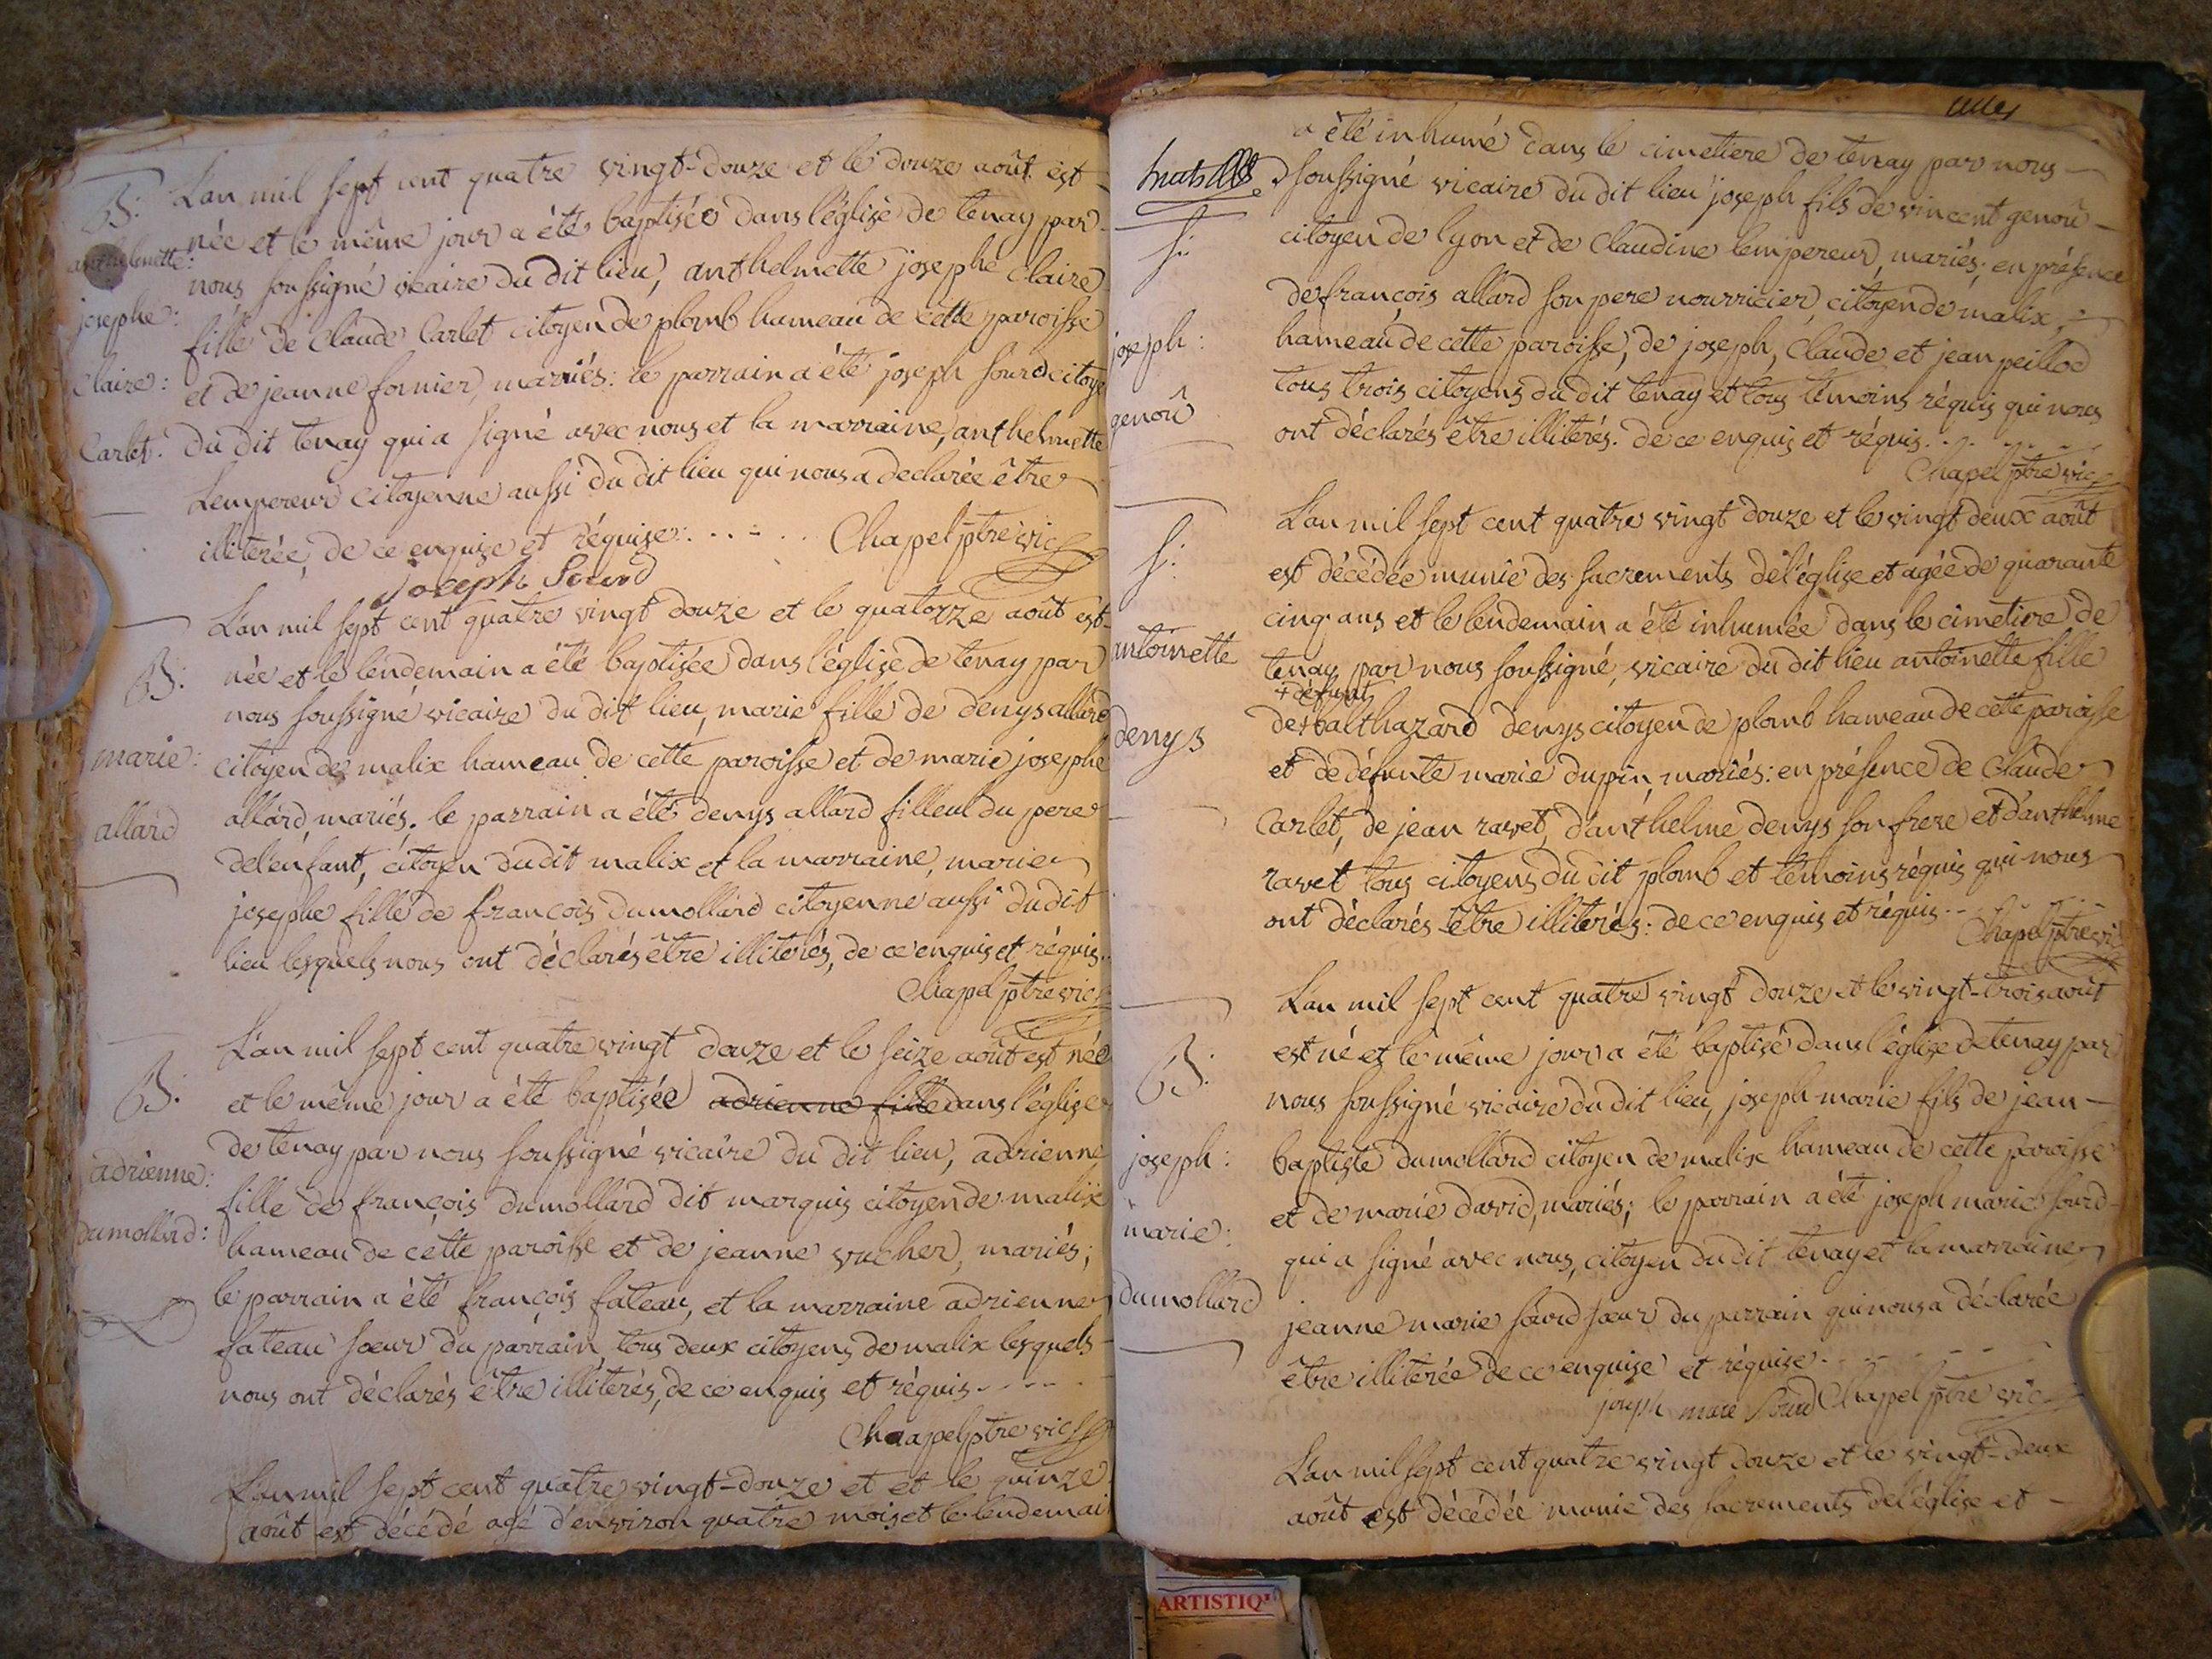 B: L'an mil sept cent quatre vingt-douze et le douze août est
née et le même jour a été baptisée dans l'églisé de tenay par
anthelmette: nous soussigné vicaire du dit lieu, anthelmette josephe claire
josephe: fille de Claude Carlet citoyen de plomb hameau de cette paroisse
Claire: et de jeanne fornier, mariés: le parrain a été joseph sourd citoye
Carlet. du dit tenay qui a signé avec nous et la marraine, anthelmette
Lempereur citoyenne aussi du dit lieu qui nous a declarée être
illiterée, de ce enquise et réquise: Chapel ptre vic
Joseph Sourd
L'an mil sept cent quatre vingt douze et le quatorze août est
B: née et le lendemain a été baptisée dans l'église de tenay par
nous soussigné vicaire du dit lieu, marie fille de denys allard
marie: citoyen de malix hameau de cette paroisse et de marie josephe
allard allard, mariés. le parrain a été denys allard filleul du pere
de l'enfant, citoyen du dit malix et la marraine, marie
josephe fille de françois dumollard citoyenne aussi du dit
lieu lesquels nous ont déclarés être illiterés, de ce enquis et réquis..
Chapel ptre vic
L'an mil sept cent quatre vingt douze et le seize août est née
B: et le même jour a été baptisée adrienne fille dans l'église
de tenay par nous soussigné vicaire du dit lieu, adrienne
adrienne: fille de françois dumollard dit marquis citoyen de malix
dumollard: hameau de cette paroisse et de jeanne vucher, mariés;
le parrain a été françois fateau, et la marraine adrienne
fateau sœur du parrain tous deux citoyens de malix lesquels
nous ont déclarés être illiterés, de ce enquis et réquis
Chaapel ptre vic
L'an mil sept cent quatre vingt-douze et et le quinze
août est décédé agé d'environ quatre mois et le lendemain
a été inhumé dans le cimetiere de tenay par nous
soussigné vicaire du dit lieu joseph fils de vincent genoû
S: citoyen de lyon et de Claudine lempereur, mariés; en présence
de françois allard son pere nourricier, citoyen de malix,
joseph: hameau de cette paroisse, de joseph, Claude et jean peillod
tous trois citoyens du dit tenay et tous témoins réquis qui nous
genoû ont déclarés être illiterés. de ce enquis et réquis.
Chapel ptre vic
L'an mil sept cent quatre vingt douze et le vingt deux août
S: est décédée munie des sacrements de l'église et agée de quarante
cinq ans et le lendemain a été inhumée dans le cimetiere de
antoinette tenay par nous soussigné, vicaire du dit lieu antoinette fille
+ défunt
denys de + balthazard denys citoyen de plomb hameau de cette paroisse
et de défunte marie dupin, mariés: en présence de Claude
Carlet, de jean ravet, d'anthelme denys son frere et d'anthelme
ravet tous citoyens du dit plomb et témoins réquis qui nous
ont déclarés être illiterés: de ce enquis et réquis
Chapel ptre vic
L'an mil sept cent quatre vingt douze et le vingt-trois août
B: est né et le même jour a été baptisé dans l'église de tenay par
nous soussigné vicaire du dit lieu, joseph-marie fils de jean-
joseph: baptiste dumollard citoyen de malix hameau de cette paroisse
et de marie david, mariés; le parrain a été joseph marie sourd
marie: qui a signé avec nous, citoyen du dit tenay et la marraine
dumollard jeanne marie sourd sœur du parrain qui nous a déclarée
être illiterée de ce enquise et réquise
joseph marie Sourd Chapel ptre vic
L'an mil sept cent quatre vingt douze et le vingt-deux
août est décédée munie des sacrements de l'église et
ARTISTIQ